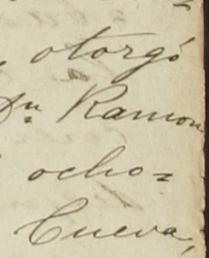 , otorgó
Dn. Ramon
ocho=
Cueva,